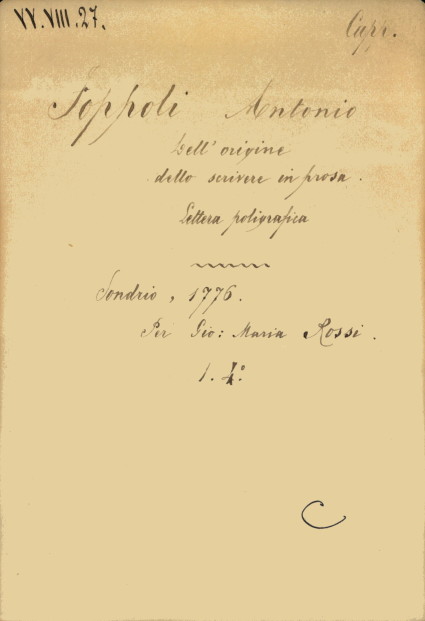 VV.VIII.27.
Capp.
Foppoli Antonio
Dell'origine
dello scrivere in prosa.
Lettera poligrafica
Sondrio, 1776.
Per Gio: Maria Rossi.
1. 4°.
C